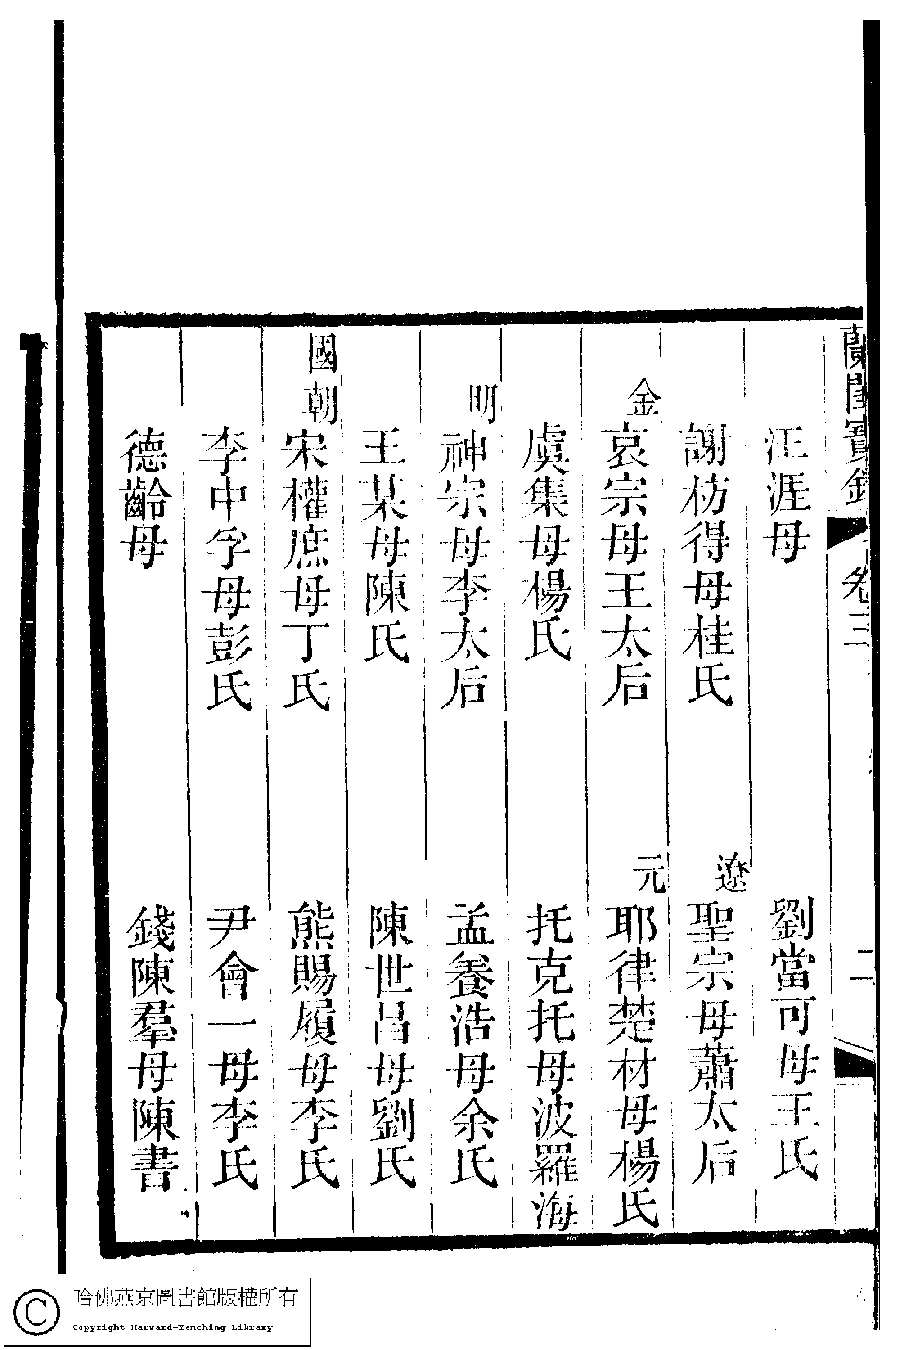 蘭閨寶錄 卷三 二
汪涯母 劉當可母王氏
謝枋得母桂氏 遼 聖宗母蕭太后
金 哀宗母王太后 元 耶律楚材母楊氏
虞集母楊氏 托克托母波羅海
明 神宗母李太后 孟養浩母余氏
王某母陳氏 陳世昌母劉氏
國朝 宋權庶母丁氏 熊賜履母李氏
李中孚母彭氏 尹會一母李氏
德齡母 錢陳羣母陳書
哈佛燕京圖書館版權所有
Copyright Harvard-Yenching Library